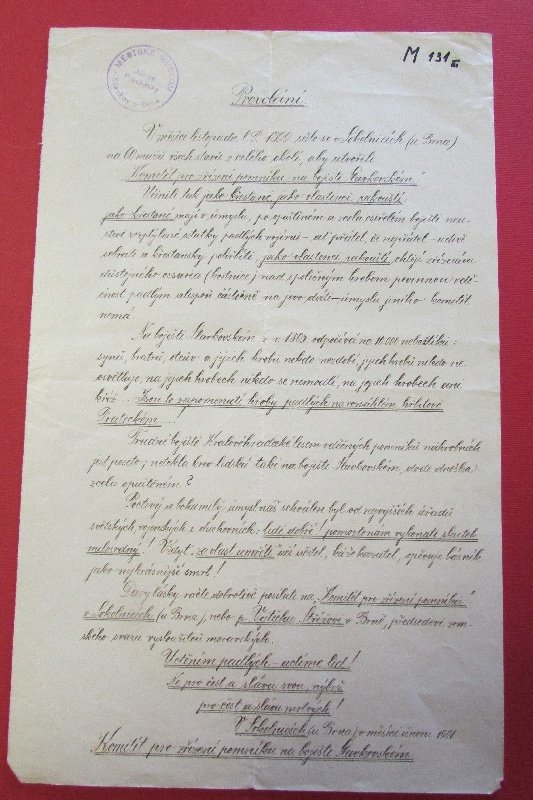 MĚSTSKÉ MUSEUM
M 131
Provolání.
V měsíci listopadu l. P. 1900 sešlo se v Sokolnicích (u Brna)
na 60 mužů všech stavů z celého okolí, aby utvořili
"Komitét pro zřízení pomníku na bojišti Slavkovském."
Učinili tak jako křesťané, jako vlastenci rakouští
jako křesťané majíce v úmyslu, po opuštěném a zcela osiřelém bojišti
rozptýlené statky padlých vojínů – ať přátel, či nepřátel – uctivě
sebrati a křesťansky pohřbíti, jako vlastenci rakouští, chtějí zřízením
důstojného ossaria (kostnice) nad společným hrobem povinnou vděčnost
padlým alespoň částečně na jevo dáti – úmyslu jiného komitét
nemá
Na bojišti Slavkovském z r. 1805 odpočívá na 10.000 nebožtíků:
synů, bratří, otců a jejich hrobů nikdo nezdobí, jejich hrobů nikdo neosvětluje,
na jejich hrobech nikdo se nemodlí, na jejich hrobech ani
kříž. Jsou to zapomenuté hroby padlých na rozsáhlém hřbitově
Prateckém....
Trudné bojiště Královéhradecké lesem vděčných pomníků náhrobních
jest poseto; neteklo krve lidská také na bojišti Slavkovském, dode dneška
zcela opuštěném?
Poctivý a bohumilý úmysl náš schválen byl od nejvyšších úřadů
světských vojenských i duchovních: lidé dobří! pomozte nám vykonati skutek
milosrdný! Vždyť, za vlast umříti učí učitel, káže kazatel, opěvuje básník
jako nejkrásnější smrt!
Dary lásky račte dobrotivě posílati na "Komitét pro zřízení pomníku"
v Sokolnicích (u Brna), nebo p. Střízovi v Brně, předsedovi zemského
svazu vysloužilců moravských.
Uctěním padlých – uctíme lid!
Ne pro čest a slávu svou, nýbrž
pro čest a slávu mrtvých!
V Sokolnicích (u Brna) v měsíci únoru 1901
Komitét pro zřízení pomníku na bojišti Slavkovském.